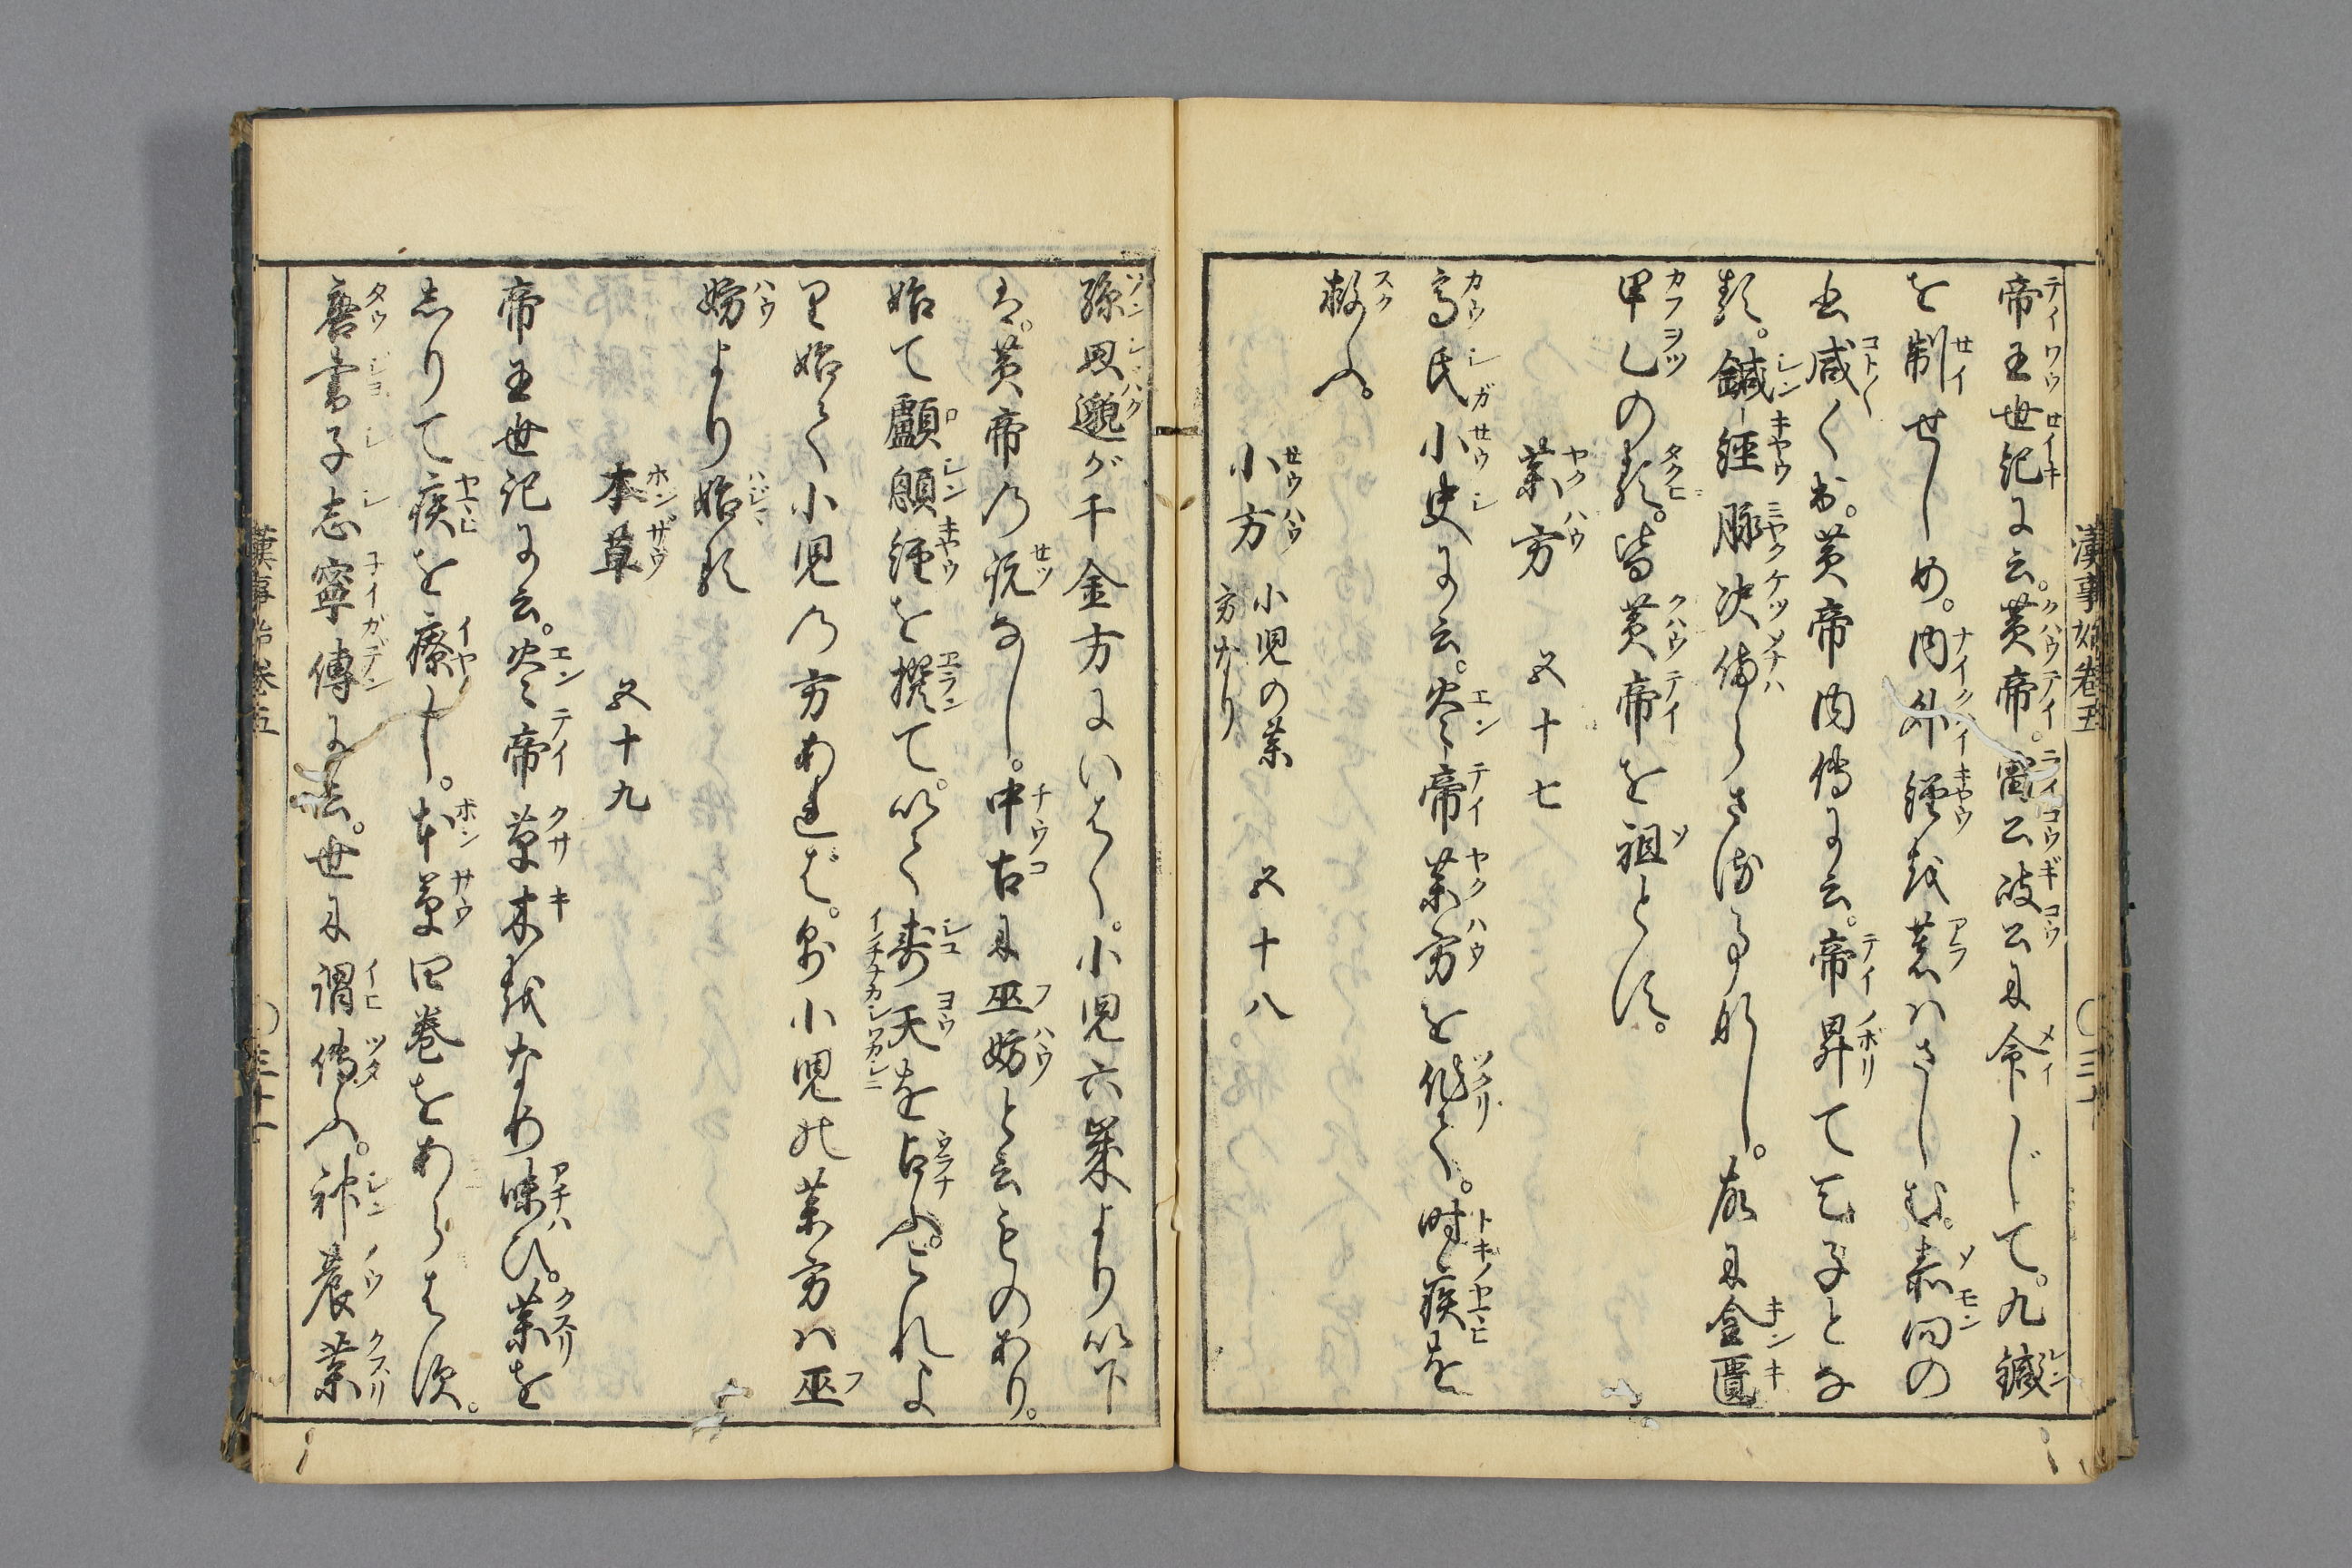 漢事始巻五　〇三十
帝王世紀に云。黄帝。雷公岐公に令じて。九鍼
を制せしめ。内外経を著ハさしむ。素問の
書咸く出。黄帝内傳に云。帝昇て天子とな
る。鍼経脉決備らざる事なし。故に金匱
甲乙の類。皆黄帝を祖とす。
薬方　五十七
高氏小史に云。炎帝薬方を作て。時疾を
救ふ。
小方　小児の薬方なり　五十八
孫思邈が千金方にいはく。小児六歳より以下
は。黄帝の説なし。中古に巫妨と云ものあり。
始て顱顖経を撰て。以て壽夭を占ふ。これよ
り始て小児の方あれば。則小児の薬方ハ巫
妨より始る
本草　五十九
帝王世記に云。炎帝草木をなめ味ひ。薬を
志りて疾を療し。本草四巻をあらはす。
唐書于志寧傳に云。世に謂傳ふ。神農薬
漢事始巻五　〇三十一